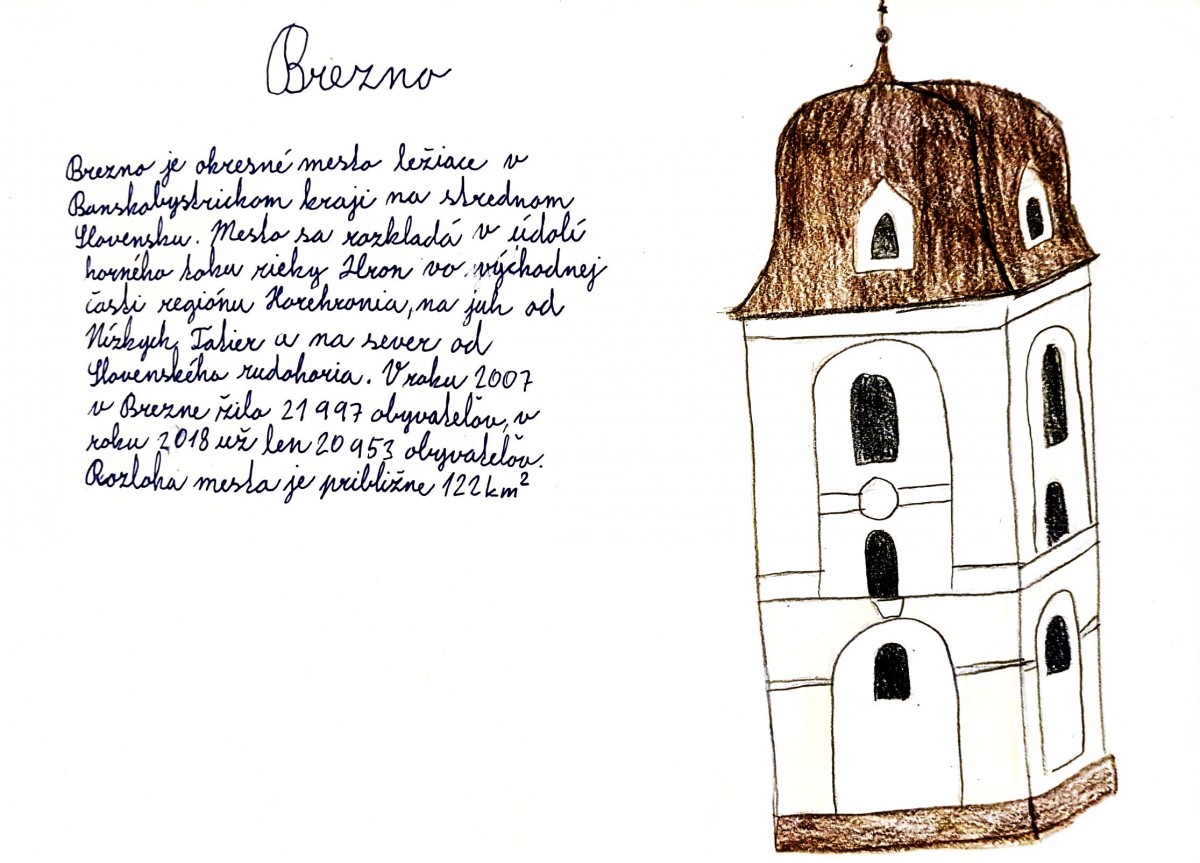 Brezno
Brezno je okresné mesto ležiace v
Banskobystrickom kraji na strednom
Slovensku. Mesto sa rozkladá v údolí
horného toku rieky Hron vo východnej
časti regiónu Horehronia, na juh od
Nízkych Tatier a na sever od
Slovenského rudohoria. V roku 2007
v Brezne žilo 21 997 obyvateľov, v
roku 2018 už len 20 953 obyvateľov.
Rozloha mesta je približne 122 km²